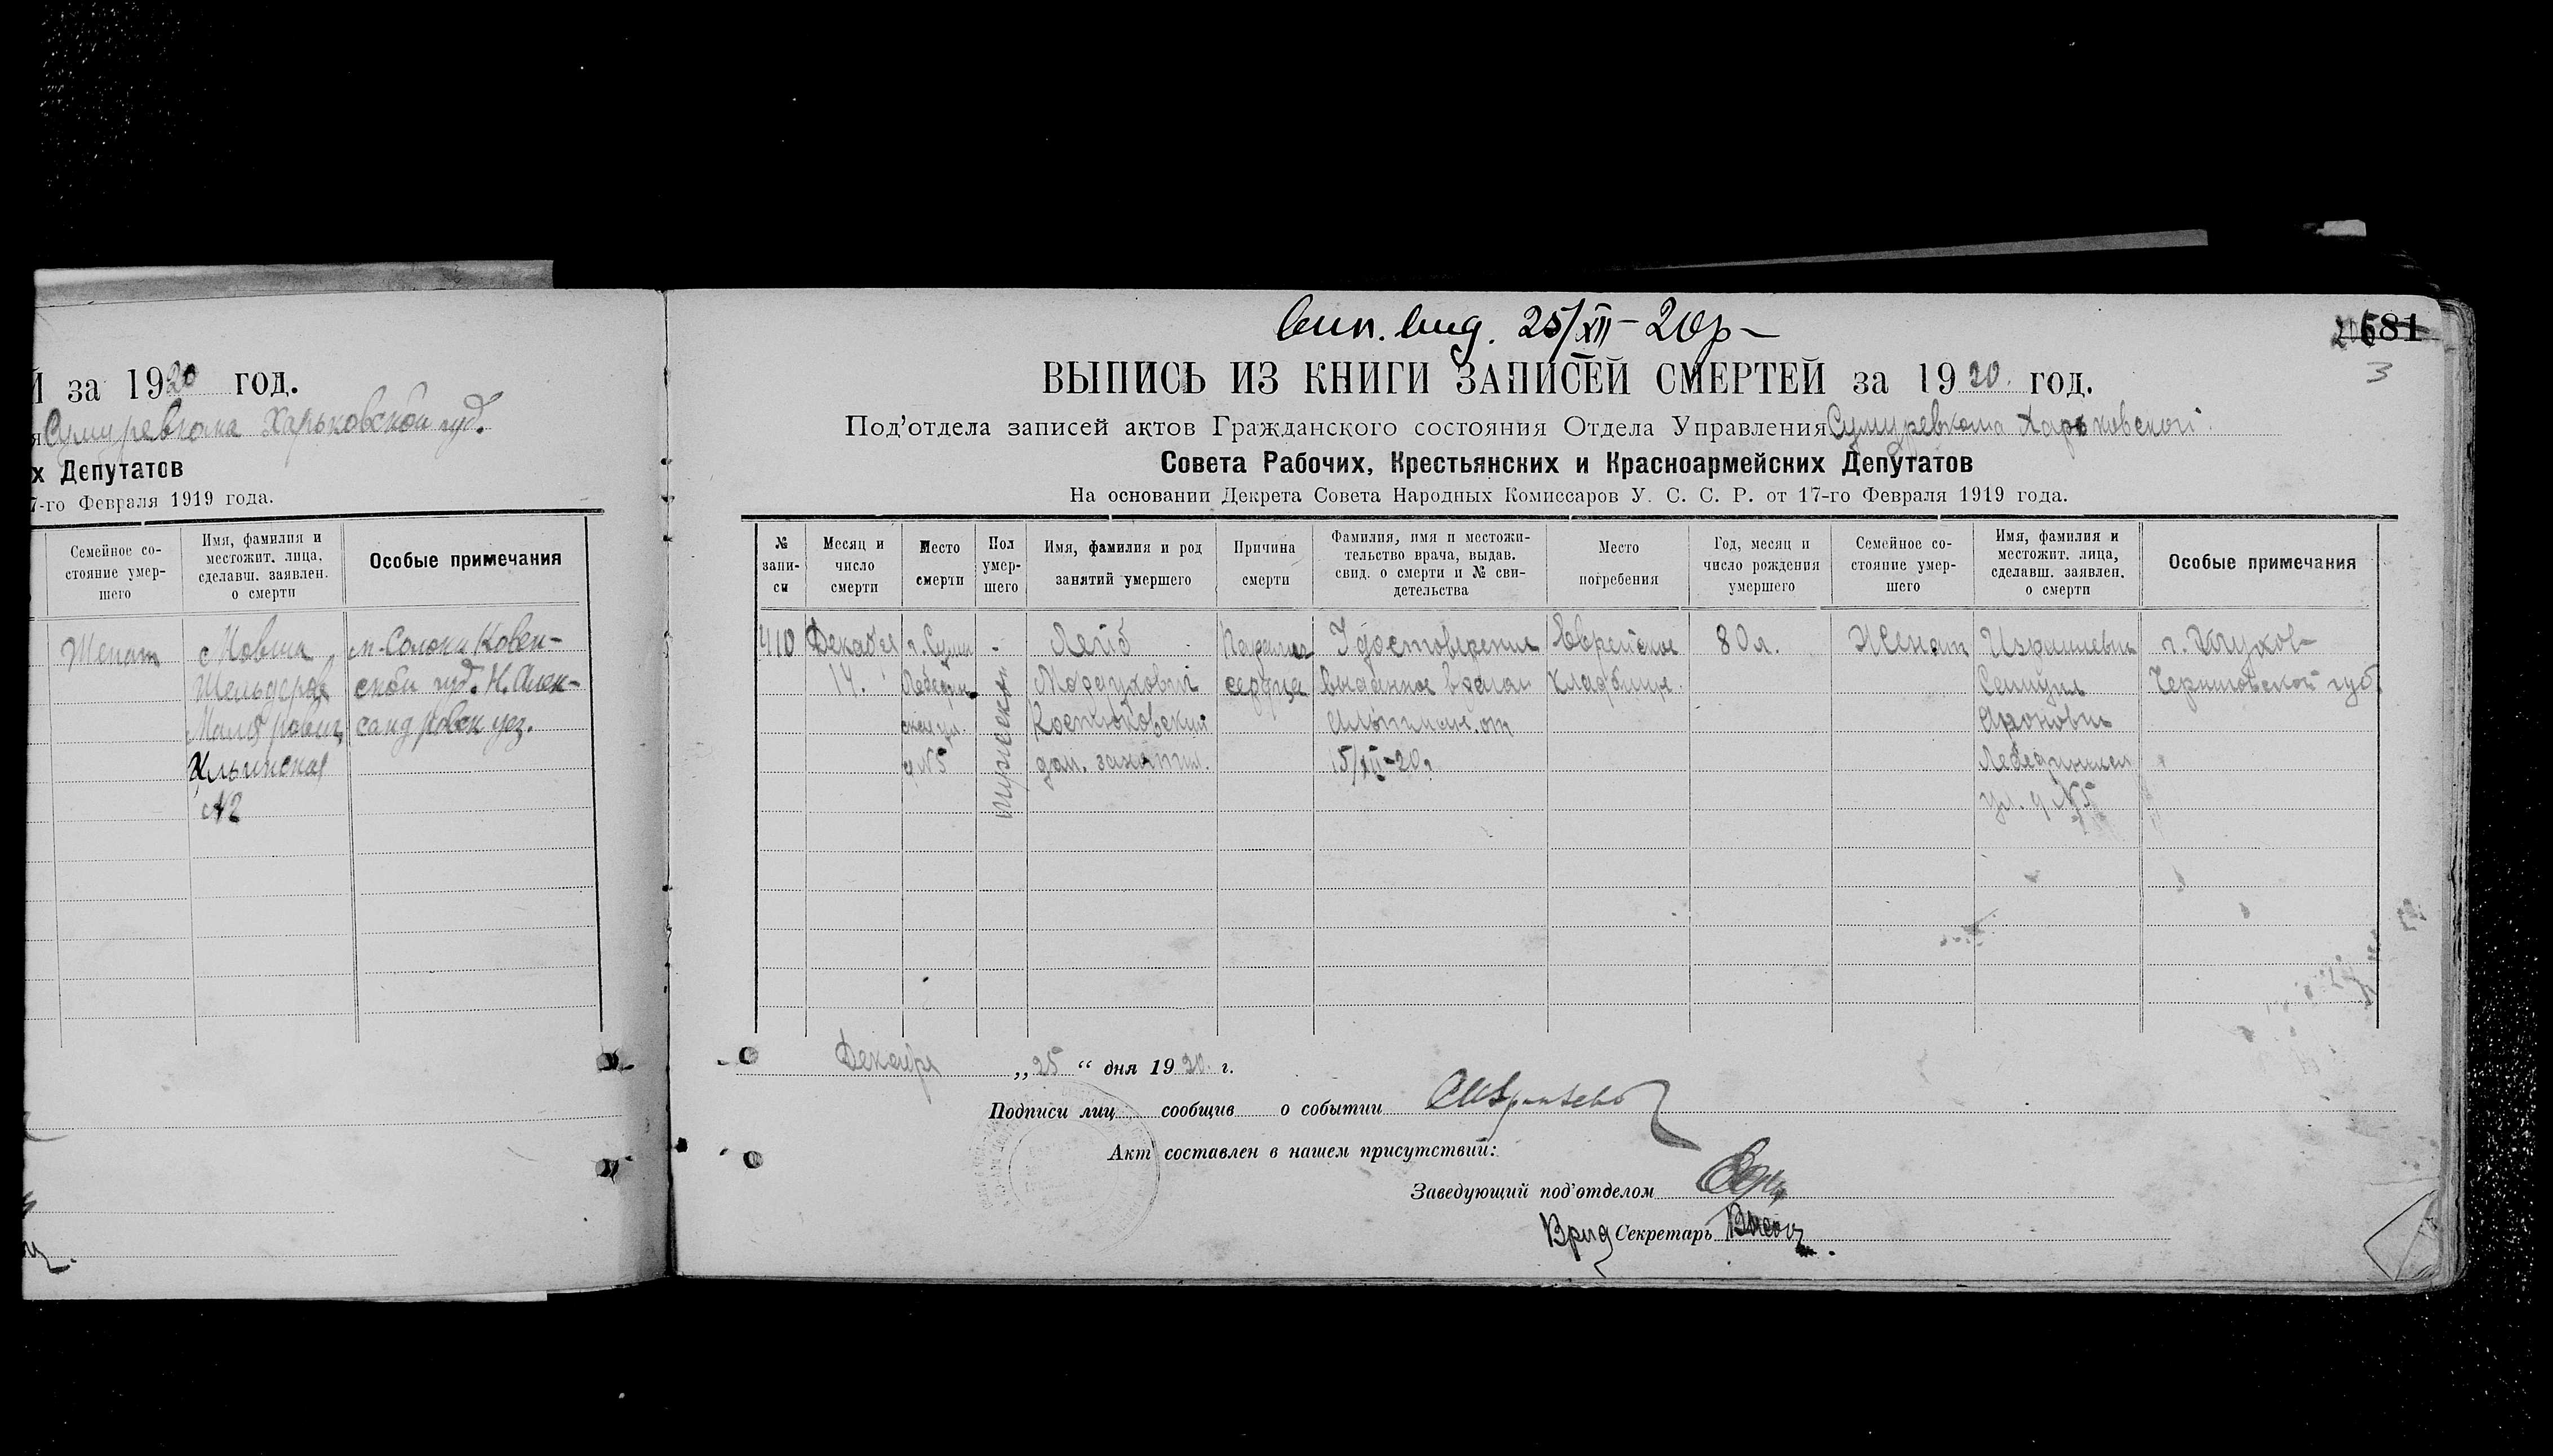 за 1920 год.
Сумуревкома Харьковской губ.
х Депутатов
7-го Февраля 1919 года.
Семейное со-
стояние умер-
шего
Имя, фамилия и
местожит. лица,
сделавш. заявлен.
о смерти
Особые примечания
Женат
Мовша
м. Солоки Ковен-
ской губ. Н. Алек-
сандровск уез.
Ильинская
№2
Вип. вид. 25/XII-20р
681
3
ВЫПИСЬ ИЗ КНИГИ ЗАПИСЕЙ СМЕРТЕЙ за 1920. год.
Под'отдела записей актов Гражданского состояния Отдела Управления Сумуревкома Харьковской
Совета Рабочих, Крестьянских и Красноармейских Депутатов
На основании Декрета Совета Народных Комиссаров У. С. С. Р. от 17-го Февраля 1919 года.
№
запи-
си
Месяц и
число
смерти
Место
смерти
Пол
умер-
шего
Имя, фамилия и род
занятий умершего
Причина
смерти
Фамилия, имя и местожи-
тельство врача, выдав.
свид. о смерти и № сви-
детельства
Место
погребения
Год, месяц и
число рождения
умершего
Семейное со-
стояние умер-
шего
Имя, фамилия и
местожит. лица,
сделавш. заявлен.
о смерти
Особые примечания
410
Декабря
14.
г. Сумы
Лебедин-
ская ул.
д №5
мужеский
Лейб
Мордухович
Костюковский
дом. занятия.
Паралич
сердца
Удостоверение
выданное врачом
от
15/XII-20г
Еврейское
кладбище.
80 л.
Женат
Израилевич
Самуил
Аронович
Лебединская
ул. д №5
г. Глухов
Черниговской губ.
Декабря „25“ дня 1920. г.
Подписи лиц сообщив о событии
Акт составлен в нашем присутствий:
Заведующий под'отделом
Врид Секретарь